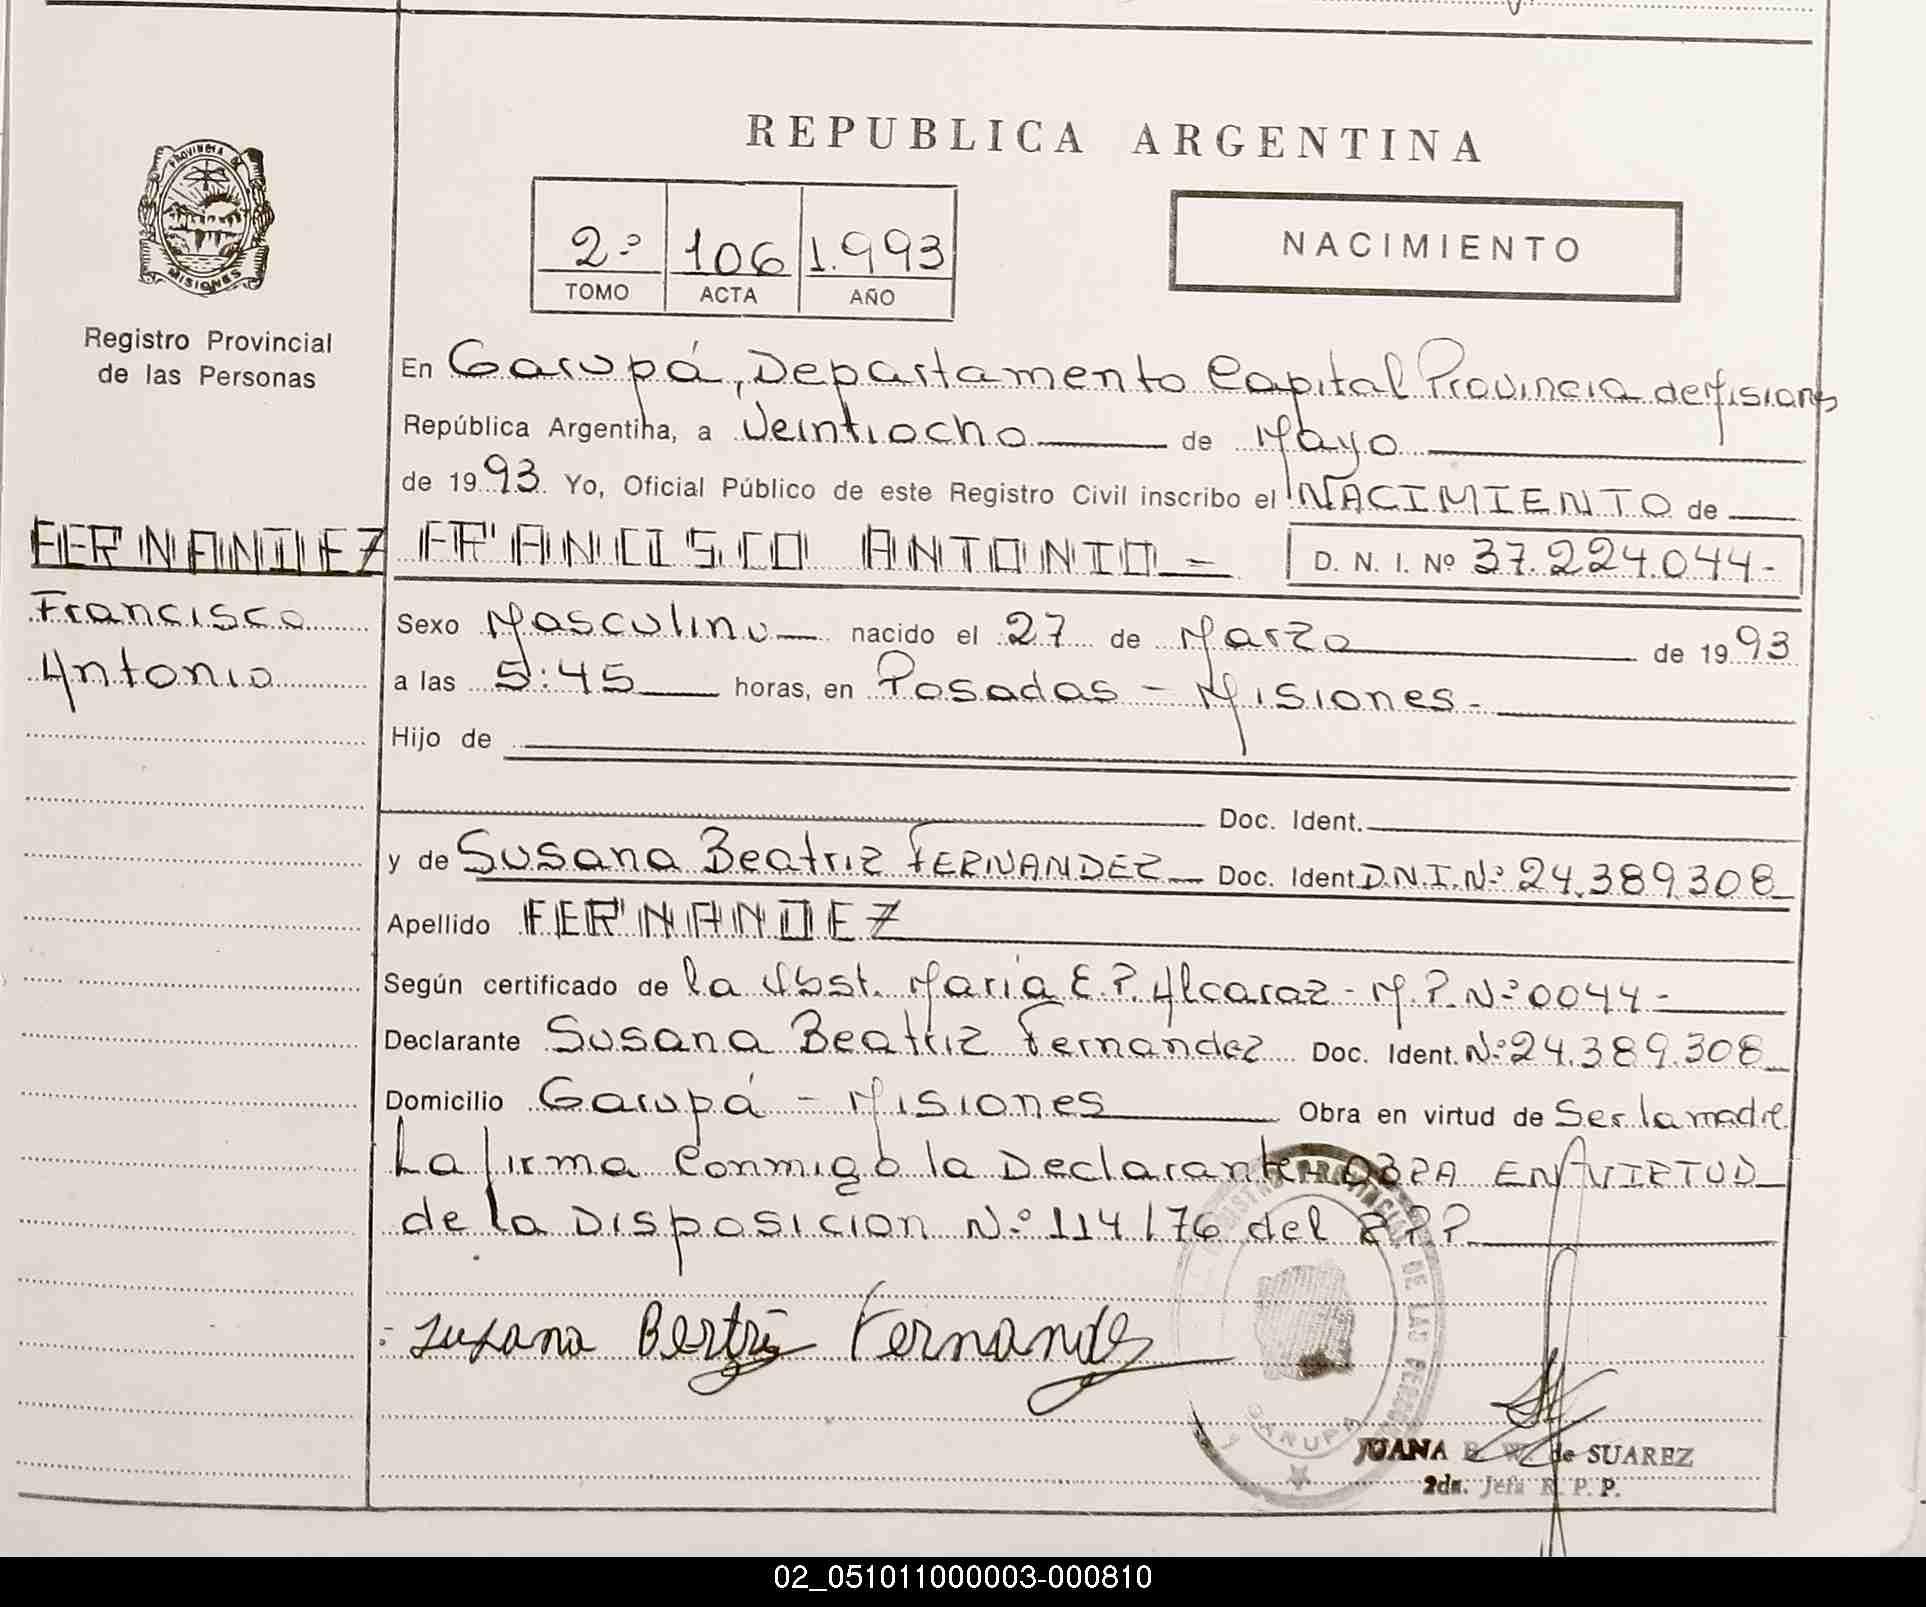 REPUBLICA ARGENTINA
PROVINCIA DE
MISIONES
Registro Provincial
de las Personas
2º 106 1.993
TOMO ACTA AÑO
NACIMIENTO
En Garupá, Departamento Capital Provincia de Misiones
República Argentina, a Veintiocho de Mayo
de 1993. Yo, Oficial Público de este Registro Civil inscribo el NACIMIENTO de
FERNANDEZ FRANCISCO ANTONIO - D. N. I. Nº 37.224.044-
Francisco
Antonio
Sexo Masculino nacido el 27 de Marzo de 1993
a las 5:45 horas, en Posadas - Misiones -
Hijo de
Doc. Ident.
y de Susana Beatriz FERNANDEZ Doc. Ident D.N.I.Nº 24.389.308
Apellido FERNANDEZ
Según certificado de la Obst. Maria E.P. Alcaraz - M.P. Nº 0044-
Declarante Susana Beatriz Fernandez Doc. Ident. Nº 24.389.308
Domicilio Garupá - Misiones Obra en virtud de Ser la madre
La firma Conmigo la Declarante - OBRA EN VIRTUD
de la Disposicion Nº 114/76 del RPP
Susana Bertriz Fernandez
REGISTRO PROVINCIAL DE LAS PERSONAS
GARUPA
JUANA de SUAREZ
2da. Jefa R. P. P.
02_051011000003-000810